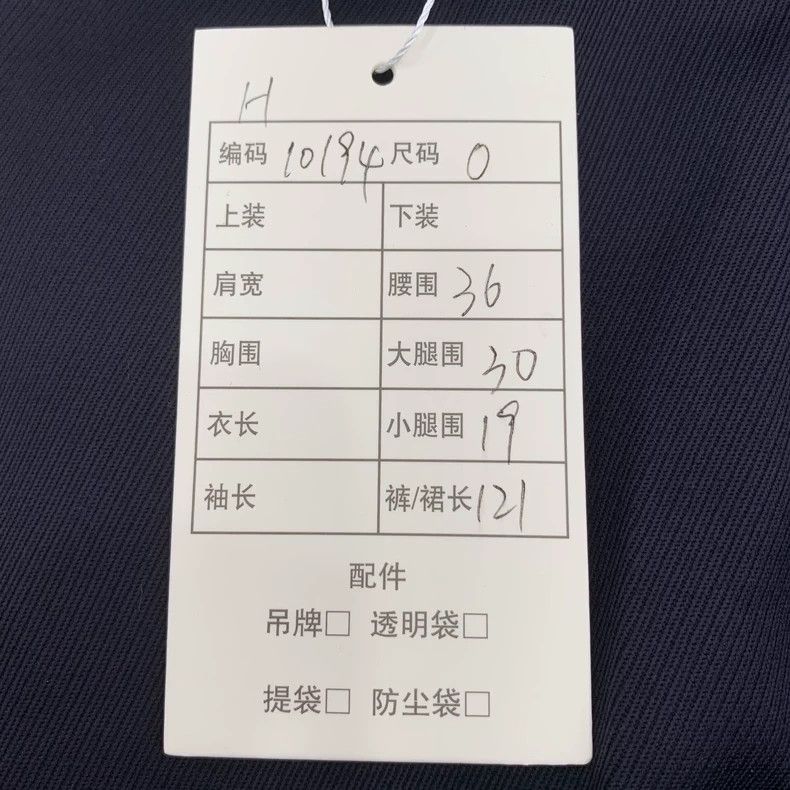 H
编码 10194 尺码 0
上装 下装
肩宽 腰围 36
胸围 大腿围 30
衣长 小腿围 19
袖长 裤/裙长 121
配件
吊牌□ 透明袋□
提袋□ 防尘袋□